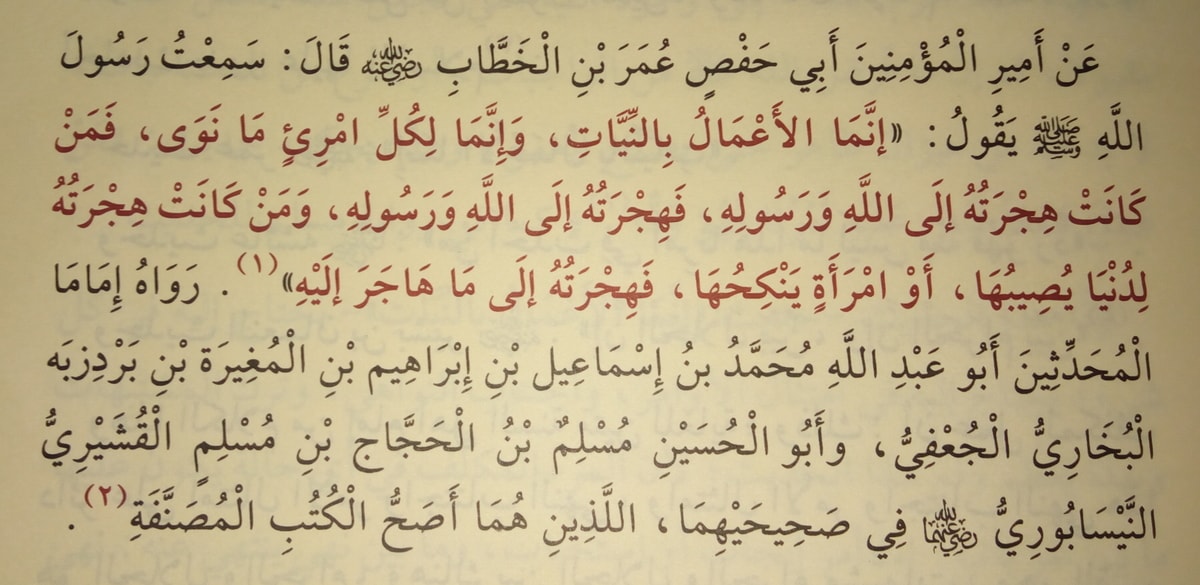 عَنْ أَمِيرِ الْمُؤْمِنِينَ أَبِي حَفْصٍ عُمَرَ بْنِ الْخَطَّابِ رضي الله عنه قَالَ: سَمِعْتُ رَسُولَ
اللَّهِ ﷺ يَقُولُ: «إنَّمَا الأَعْمَالُ بِالنِّيَّاتِ، وَإِنَّمَا لِكُلِّ امْرِئٍ مَا نَوَى، فَمَنْ
كَانَتْ هِجْرَتُهُ إلَى اللَّهِ وَرَسُولِهِ، فَهِجْرَتُهُ إلَى اللَّهِ وَرَسُولِهِ، وَمَنْ كَانَتْ هِجْرَتُهُ
لِدُنْيَا يُصِيبُهَا، أَوْ امْرَأَةٍ يَنْكِحُهَا، فَهِجْرَتُهُ إلَى مَا هَاجَرَ إلَيْهِ»(١). رَوَاهُ إِمَامَا
الْمُحَدِّثِينَ أَبُو عَبْدِ اللَّهِ مُحَمَّدُ بنُ إِسْمَاعِيل بْنِ إِبْرَاهِيم بْنِ الْمُغِيرَة بْنِ بَرْدِزبَه
الْبُخَارِيُّ الْجُعْفِيُّ، وَأَبُو الْحُسَيْنِ مُسْلِمٌ بْنُ الْحَجَّاج بْنِ مُسْلِمٍ الْقُشَيْرِيُّ
النَّيْسَابُورِيُّ رضي الله عنهما فِي صَحِيحَيْهِمَا، اللَّذِينِ هُمَا أَصَحُّ الْكُتُبِ الْمُصَنَّفَةِ(٢).